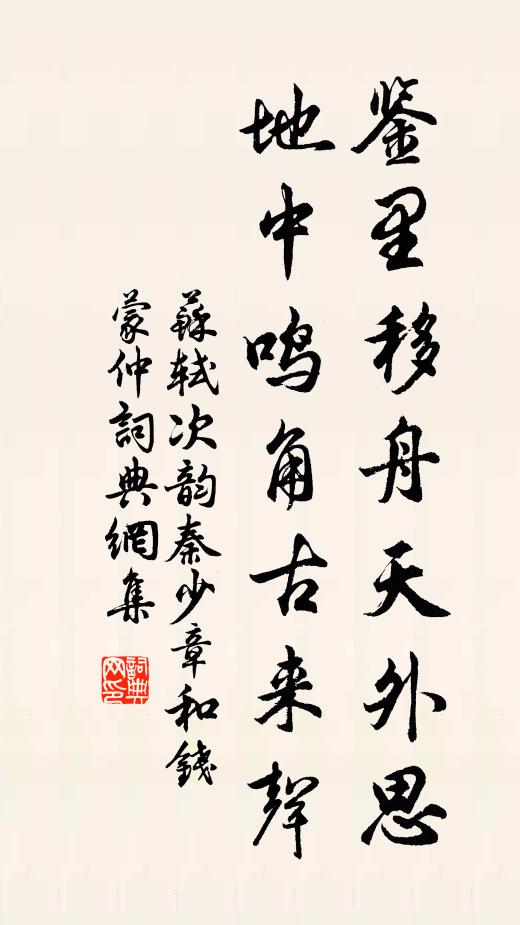 鉴里移舟天外思
地中鸣角古来聲
蘇軾次韵秦少章和錢
蒙仲詞典網集
詞典网印